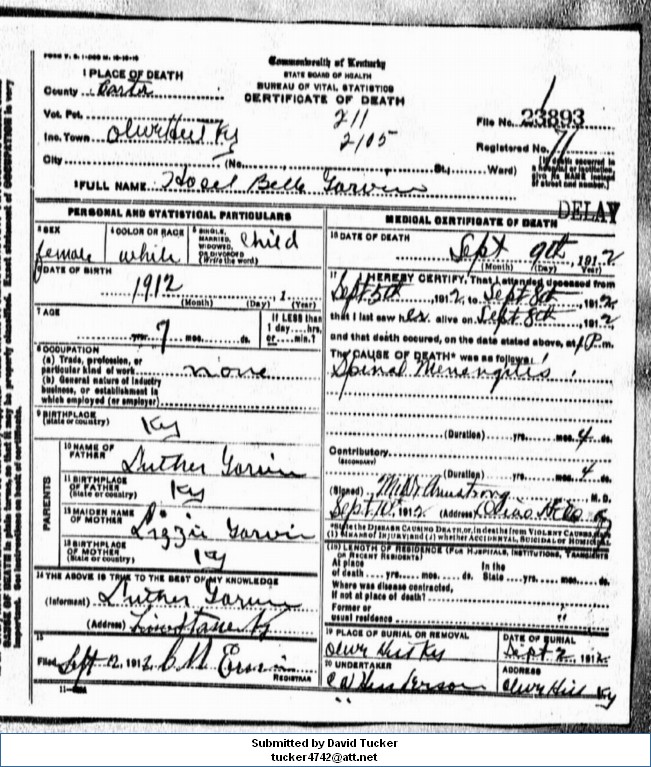 Commonwealth of Kentucky
STATE BOARD OF HEALTH
BUREAU OF VITAL STATISTICS
CERTIFICATE OF DEATH
1 PLACE OF DEATH
County Carter
Vot. Pct. 211
Inc. Town Olive Hill Ky 2105
City (No. St.; Ward)
File No. 23893
Registered No. 71
(If death occurred in a hospital or institution, give its NAME instead of street and number.)
2 FULL NAME Hosel Belle Garvin
DELAY
PERSONAL AND STATISTICAL PARTICULARS
3 SEX
female
4 COLOR OR RACE
white
5 SINGLE, MARRIED, WIDOWED, OR DIVORCED (Write the word)
Child
6 DATE OF BIRTH
1912
(Month) (Day) 1 (Year)
7 AGE
yrs. 7 mos. ds.
IF LESS than 1 day ... hrs. or ... min.?
8 OCCUPATION
(a) Trade, profession, or particular kind of work none
(b) General nature of industry business, or establishment in which employed (or employer)
9 BIRTHPLACE
(State or country) Ky
PARENTS
10 NAME OF FATHER Luther Garvin
11 BIRTHPLACE OF FATHER (State or country) Ky
12 MAIDEN NAME OF MOTHER Lizzie Garvin
13 BIRTHPLACE OF MOTHER (State or country) Ky
14 THE ABOVE IS TRUE TO THE BEST OF MY KNOWLEDGE
(Informant) Luther Garvin
(Address) Ky
15
Filed Sept 12, 1912
REGISTRAR
MEDICAL CERTIFICATE OF DEATH
16 DATE OF DEATH
Sept 9th, 1912
(Month) (Day) (Year)
17 I HEREBY CERTIFY, That I attended deceased from
Sept 5th, 1912, to Sept 8th, 1912
that I last saw her alive on Sept 8th, 1912
and that death occured, on the date stated above, at P.m.
The CAUSE OF DEATH* was as follows:
Spinal Menengitis
(Duration) yrs. mos. 4 ds.
Contributory
(SECONDARY)
(Duration) yrs. mos. 4 ds.
(Signed) Armstrong M.D.
Sept 10, 1912 (Address) Ky
18 LENGTH OF RESIDENCE (FOR HOSPITALS, INSTITUTIONS, TRANSIENTS OR RECENT RESIDENTS)
At place of death yrs. mos. ds. In the State yrs. mos. ds.
Where was disease contracted, if not at place of death?
Former or usual residence
19 PLACE OF BURIAL OR REMOVAL
Olive Hill Ky
DATE OF BURIAL
Sept 2, 1912
20 UNDERTAKER
Henderson
ADDRESS
Olive Hill Ky
Submitted by David Tucker
tucker4742@att.net